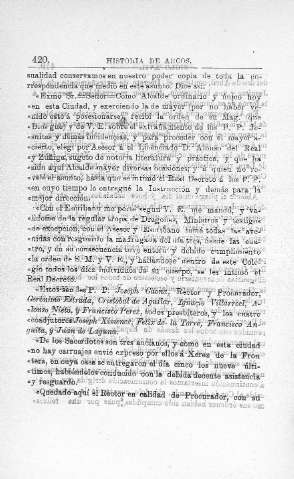 420. HISTORIA DE ARCOS.
sualidad conservamos en nuestro poder copia de toda la co-
rrespondencia que medió en este asunto. Dice así:
«Exmo Sr.—Señor: Como Alcalde ordinario y único hoy
«en esta Ciudad, y exerciendo la de mayor (por no haber ve-
«nido este á posesionarse) recibí la orden de su Mag. que
«Dios gue) y de V. E. sobre el extrañamiento de los P. P. Je-
«suitas y demás incidencias, y para proceder con el mayor a-
«cierto, elegí por Asesor á el Licenciado D. Alonso del Real
«y Zúñiga, sugeto de notoria literatura y práctica, y que ha
«sido aquí Alcalde mayor diversas ocasiones; y á quien no re-
«velé el asunto, hasta que se intimó el Real Decreto á los P. P.
«en cuyo tiempo le entregué la Instrucción y demás para la
«mejor dirección.
«Con el Escribano me porté según V. E. me mandó, y va-
«lídome de la regular tropa de Dragones, Ministros y testigos
«de excepción, con el Asesor y Escribano tomé todas las ave-
«nidas con sigilo en la madrugada del día tres, desde las cua-
«tro, y en su consecuencia tuvo entero y debido cumplimiento
«la orden de S. M. y V. E., y hallándose dentro de este Cole-
«gio todos los diez individuos de su cuerpo, se les intimó el
«Real Decreto.
«Estos son los P. P. Joseph Chenz, Rector y Procurador,
Gerónimo Estrada, Cristóbal de Aguilar, Ignacio Villarreal, A-
lonso Nieto, y Francisco Perez, todos presbíteros, y los cuatro
«coadjutores Joseph Ximenez, Felix de la Torre, Francisco An-
, y Juan de Laguna.
«De los Sacerdotes son tres ancianos, y como en esta ciudad
«no hay carruajes envié expreso por ellos á Xérez de la Fron-
«tera, en cuya casa se entregaron el día cinco los nueve últi-
«timos, habiéndolos conducido con la debida decente asistencia
«y resguardo.
«Quedado aquí el Rector en calidad de Procurador, con su